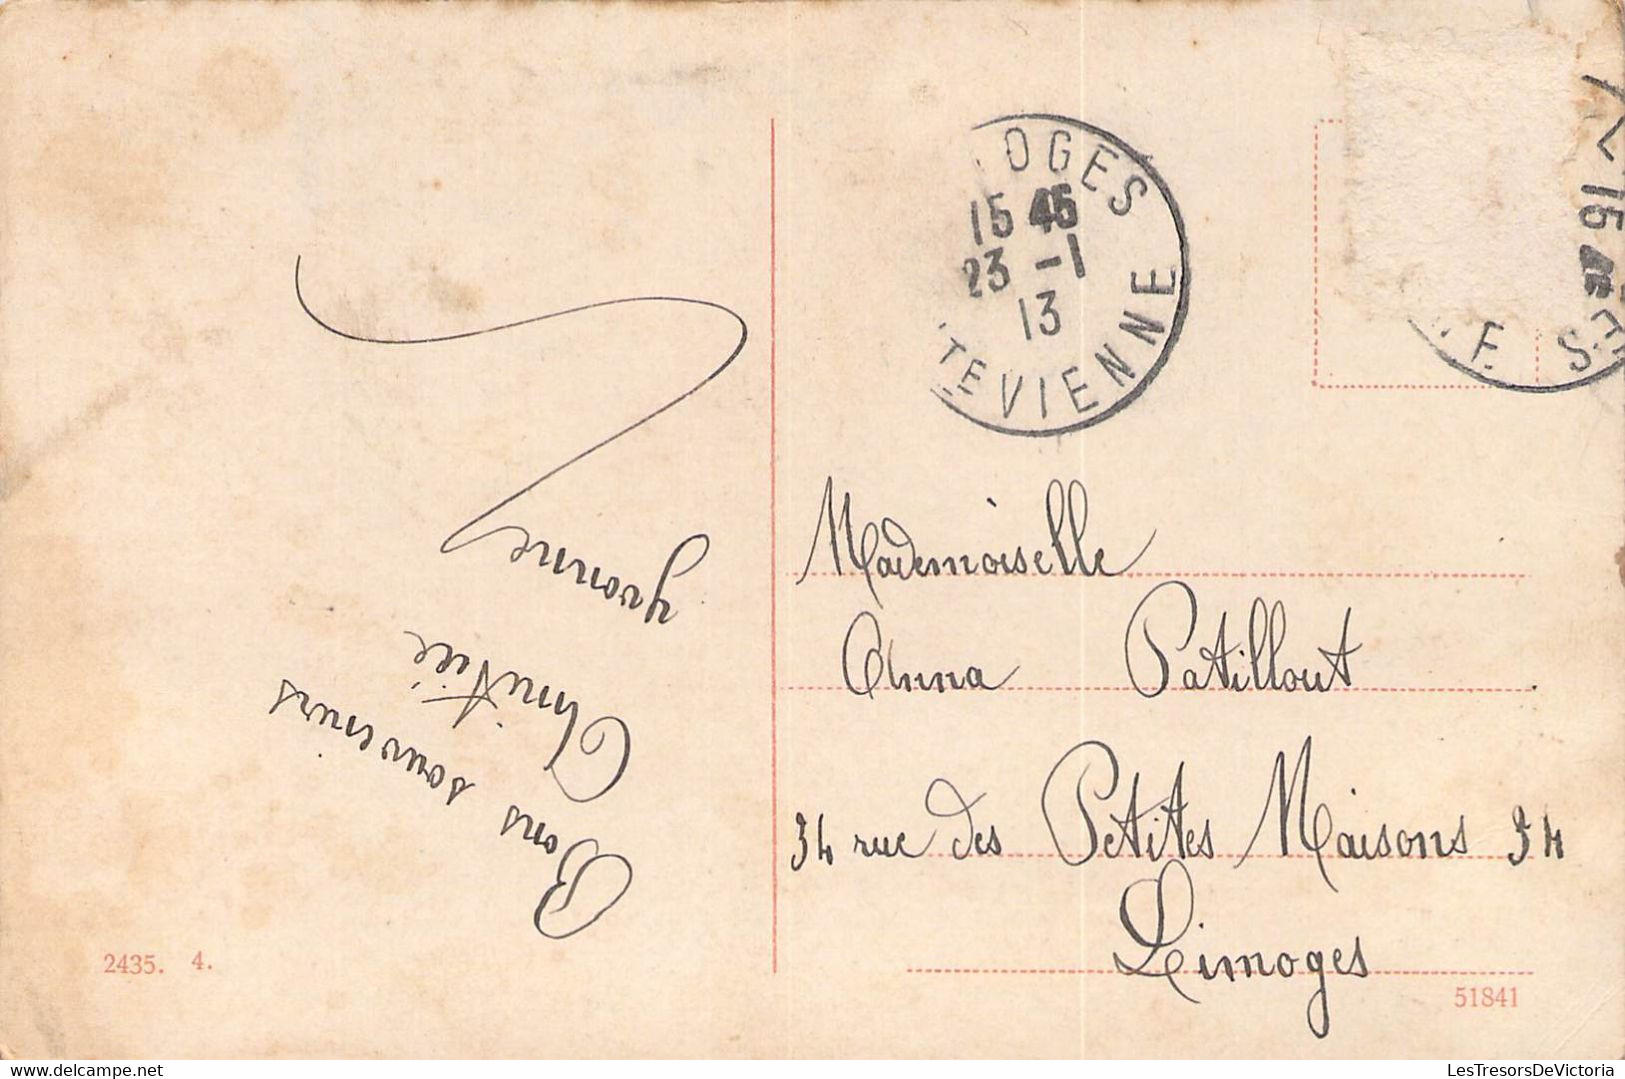 Bons souvenirs
Amitiée
yvonne
OGES
15 45
23 -1
13
TE VIENNE
15
E.
ES
Mademoiselle
Anna Patillout
34 rue des Petites Maisons 34
Limoges
2435. 4.
51841
delcampe.net
LesTresorsDeVictoria